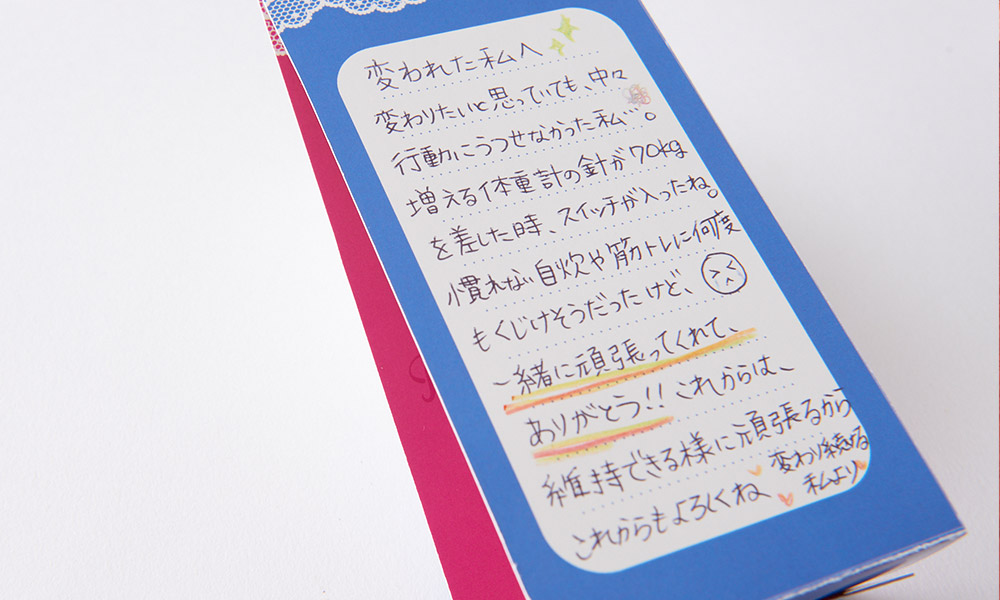 変われた私へ
変わりたいと思っていても、中々
行動にうつせなかった私…。
増える体重計の針が70kg
を差した時、スイッチが入ったね。
慣れない自炊や筋トレに何度
もくじけそうだったけど、
一緒に頑張ってくれて、
ありがとう!! これからは、
維持できる様に頑張るから
これからもよろしくね
変わり続ける
私より